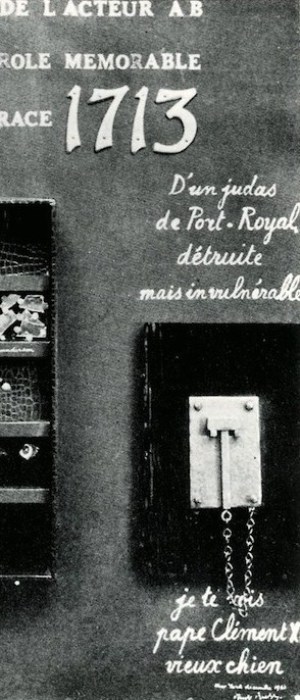 DE L'ACTEUR A B
ROLE MEMORABLE
RACE 1713
D'un judas
de Port-Royal
détruite
mais invulnérable
je te vois
pape Clément X
vieux chien